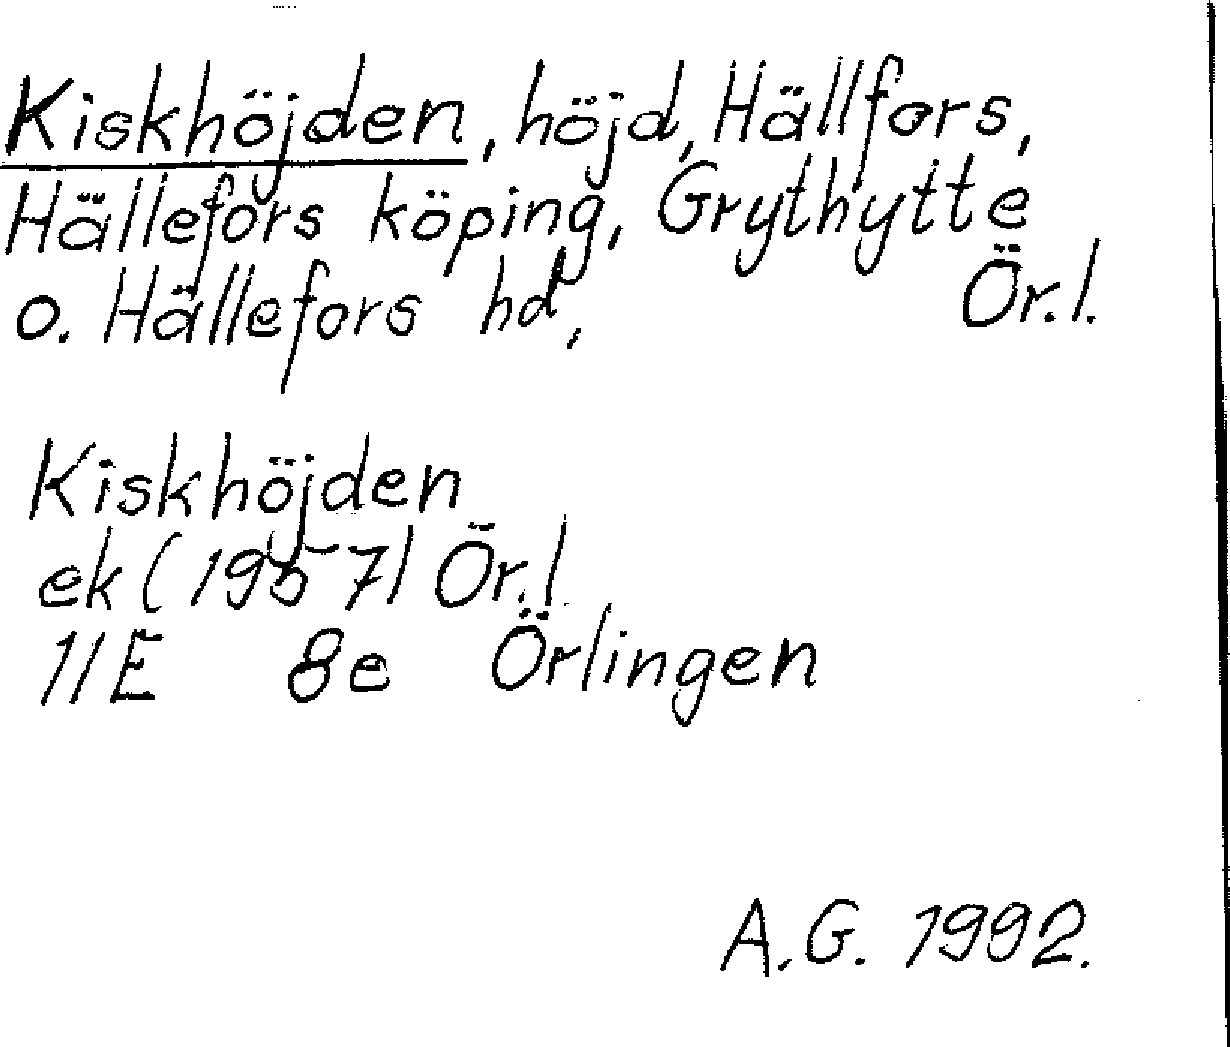 Kiskhöjden, höjd, Hällfors,
Hällefors köping, Grythytte
o. Hällefors hd, Ör.l.
Kiskhöjden
ek (1957) Ör.l.
11E 8e Örlingen
A.G. 1992.